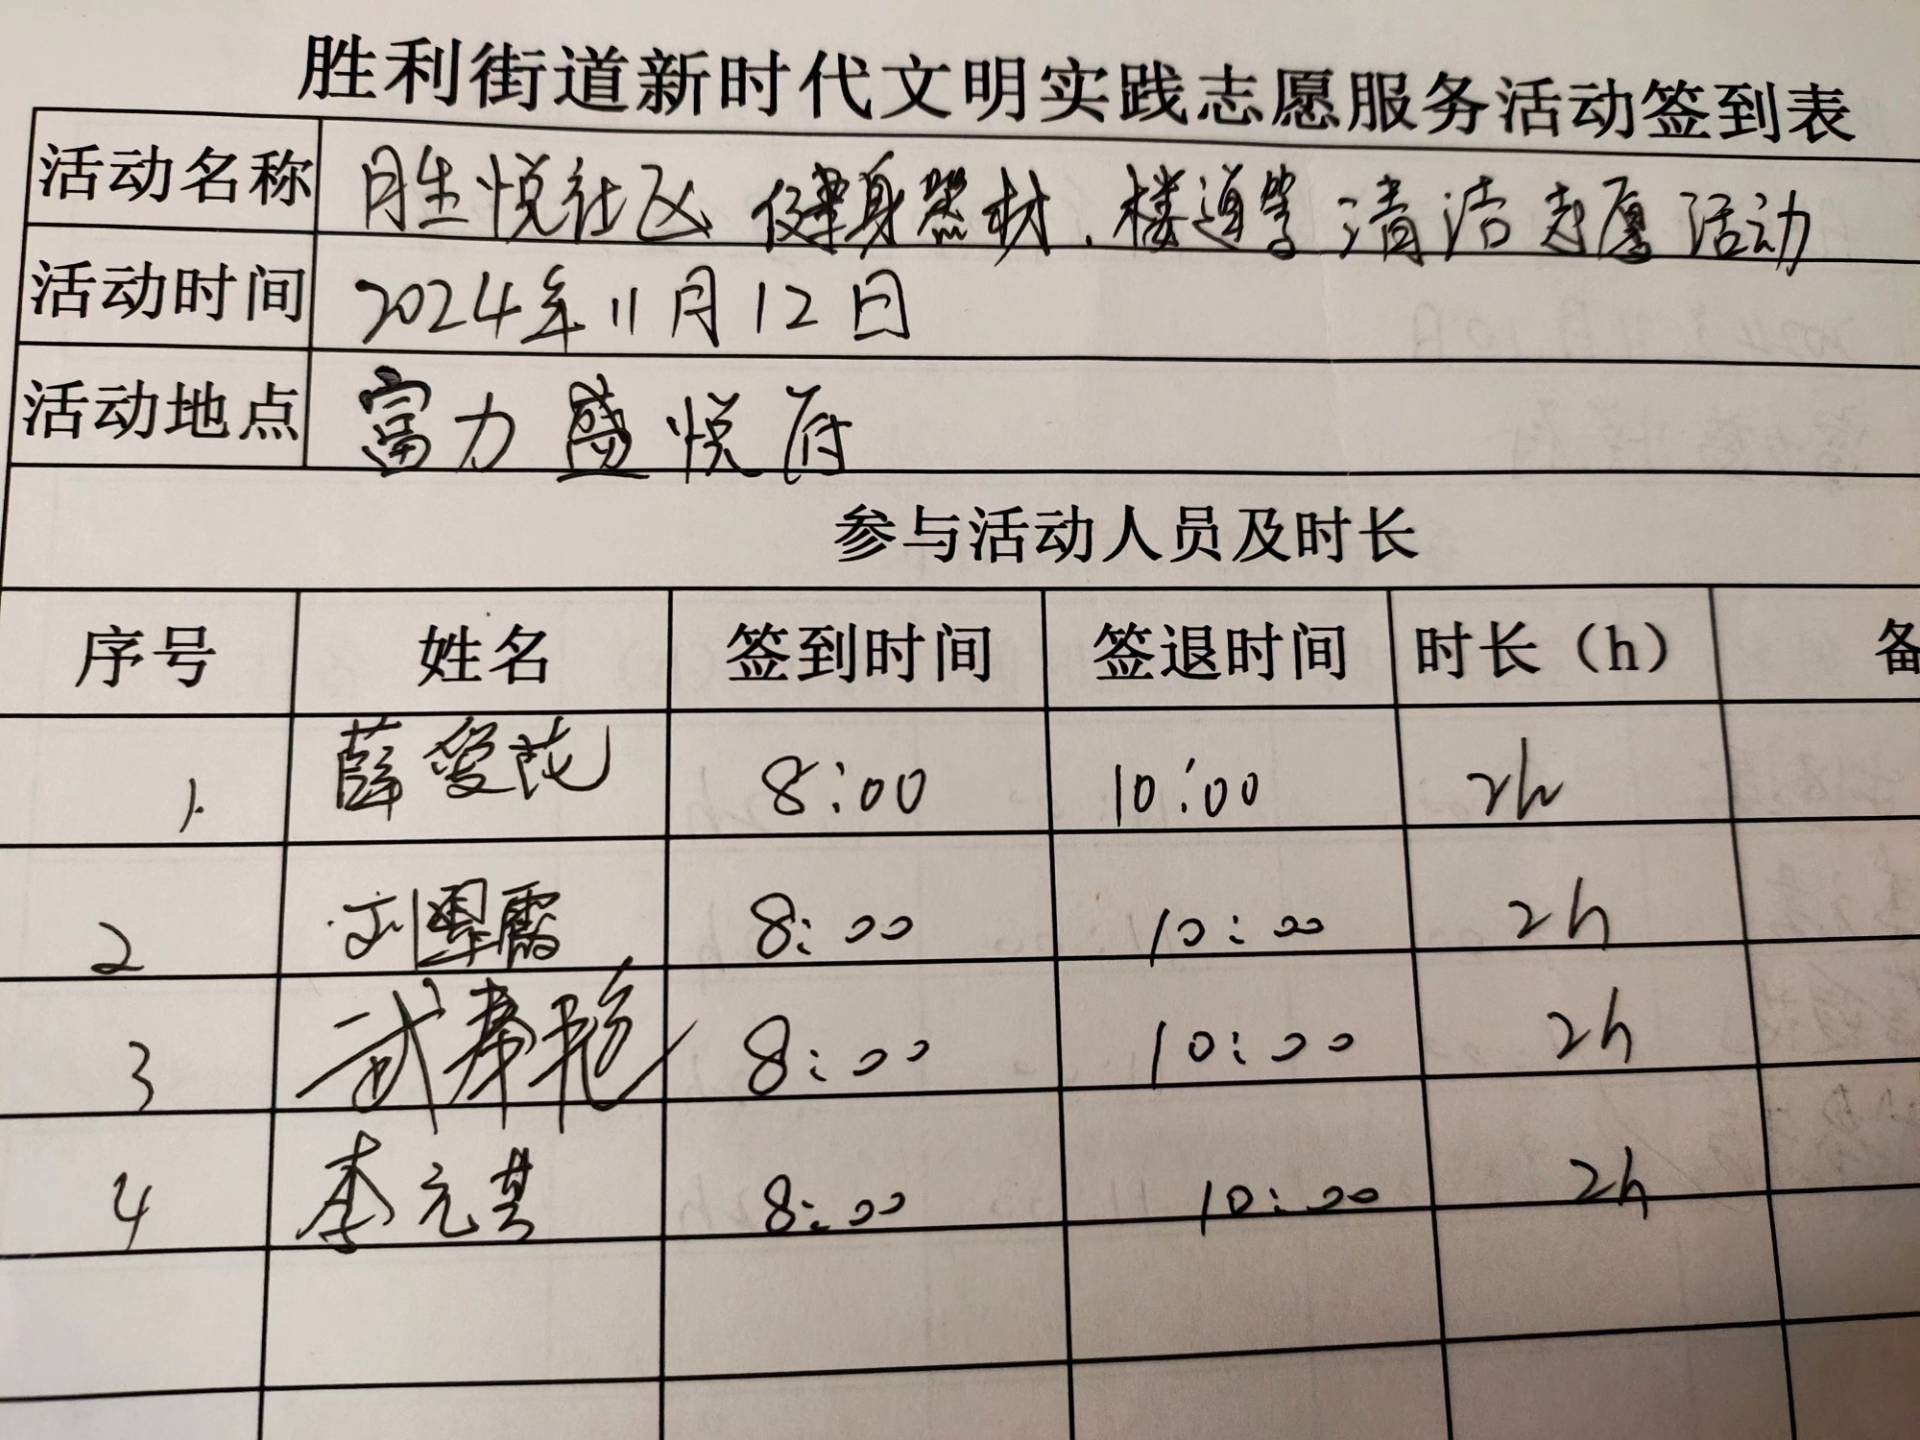 胜利街道新时代文明实践志愿服务活动签到表
活动名称 胜悦社区 健身器材、楼道等清洁志愿活动
活动时间 2024年11月12日
活动地点 富力盛悦府
参与活动人员及时长
序号 姓名 签到时间 签退时间 时长（h） 备
1. 薛爱花 8:00 10:00 2h
2 刘军霞 8:00 10:00 2h
3 武春艳 8:00 10:00 2h
4 李元其 8:00 10:00 2h